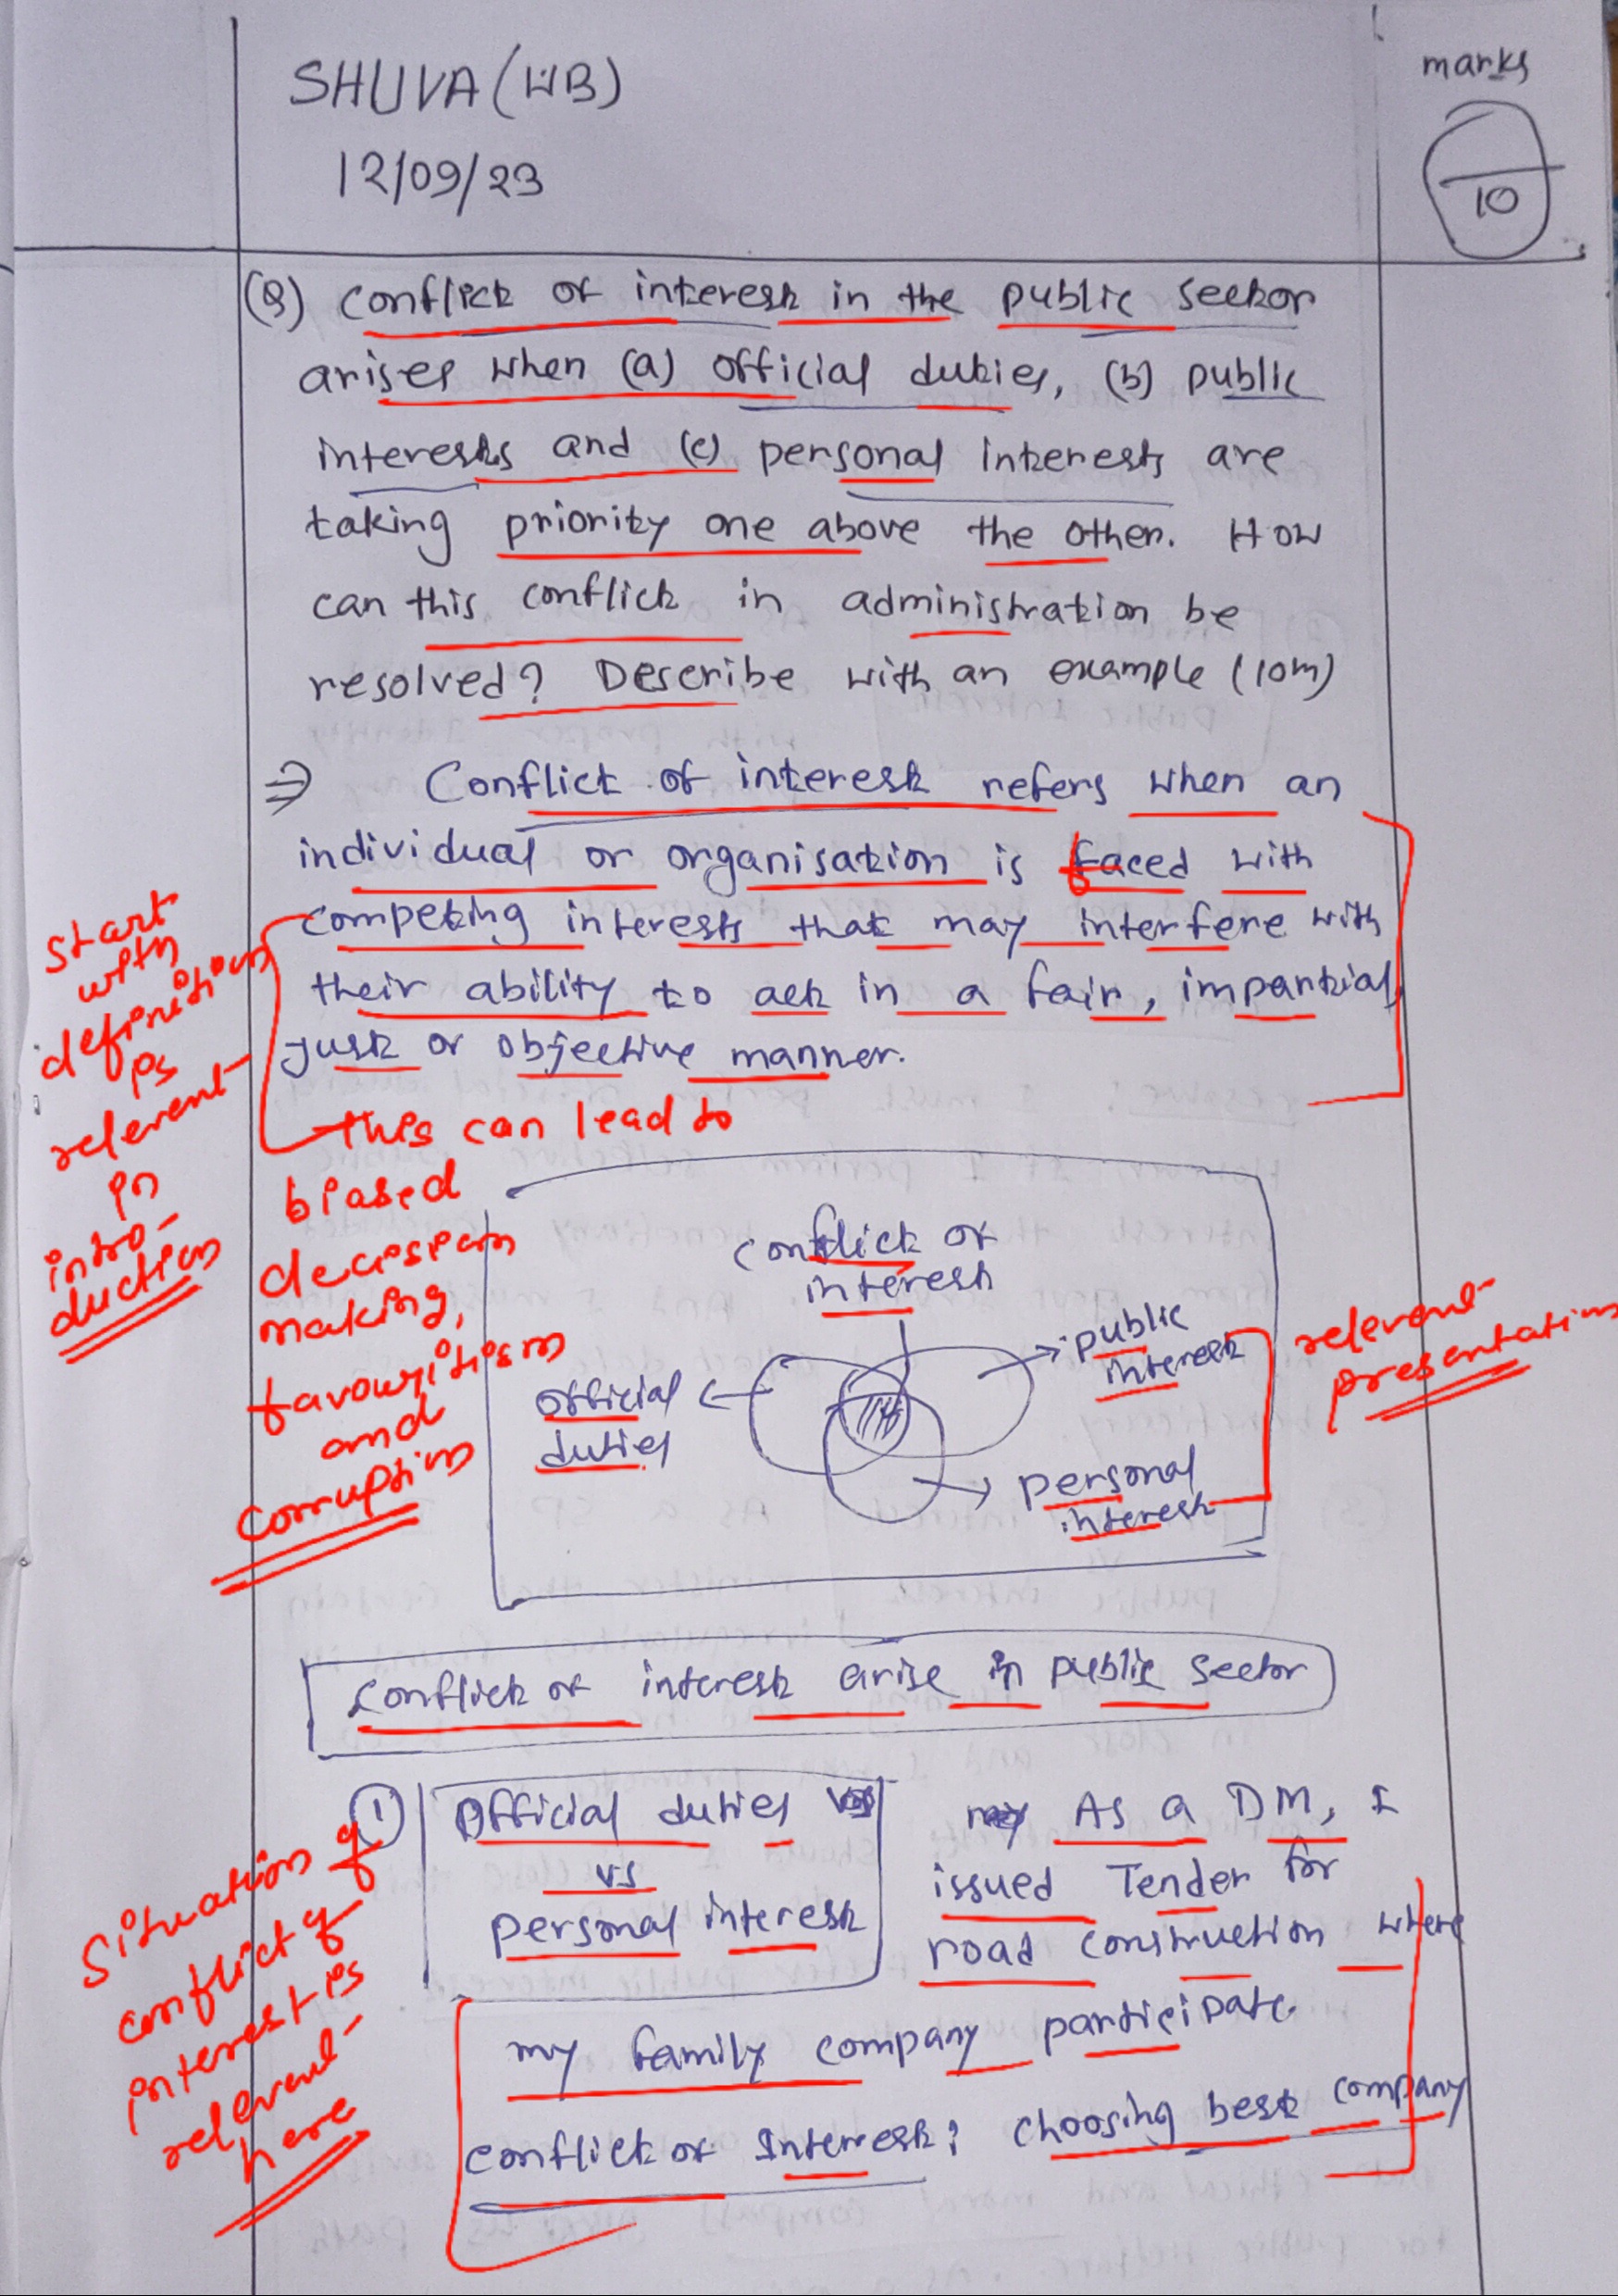 SHUVA (WB)
12/09/23
marks
10
(Q) Conflict of interest in the public sector
arises when (a) official duties, (b) public
interests and (c) personal interests are
taking priority one above the other. How
can this conflict in administration be
resolved? Describe with an example (10m)
⇒ Conflict of interest refers when an
individual or organisation is faced with
competing interests that may interfere with
their ability to act in a fair, impartial,
just or objective manner.
start
with
definition
is
relevent
in
intro-
duction
This can lead to
biased
decision
making,
favouritism
and
corruption
conflict of
interest
public
interest
official
duties
personal
interest
relevent
presentation
Conflict of interest arise in public sector
① Official duties
vs
personal interest
As a DM, I
issued Tender for
road construction where
my family company participate.
conflict of Interest: choosing best company
Situation of
conflict of
interest is
relevent
here